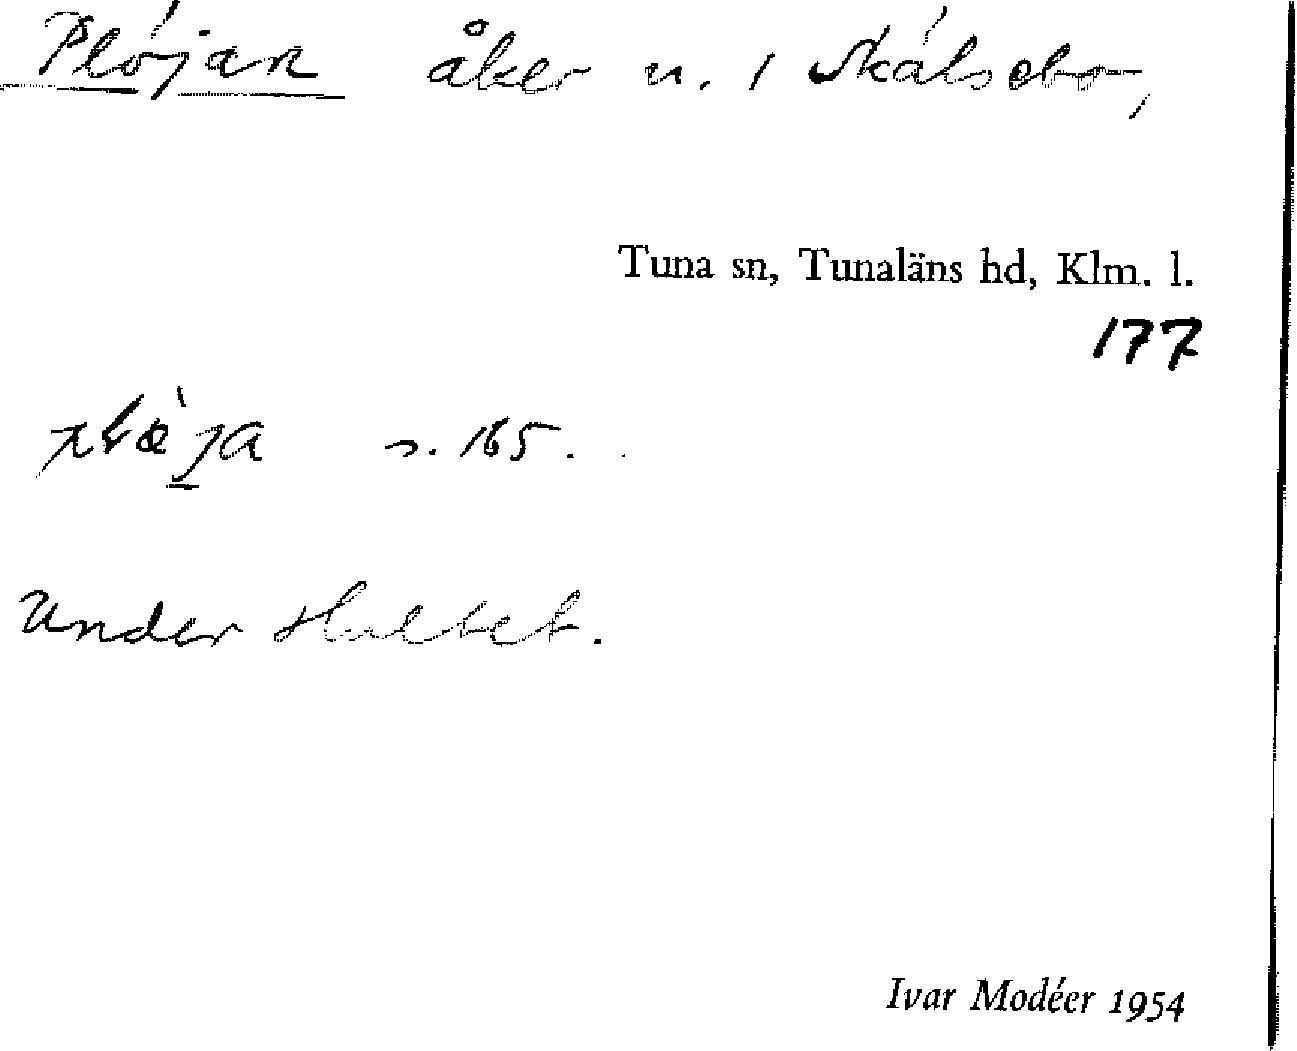 Plöjan åker n. i Skälsebo,
Tuna sn, Tunaläns hd, Klm. l.
177
s. 165.
Under Hultet.
Ivar Modéer 1954